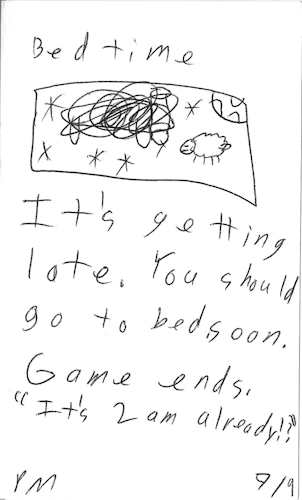 Bedtime
It's getting
late. You should
go to bed soon.
Game ends.
"It's 2 am already!?"
PM 9/9